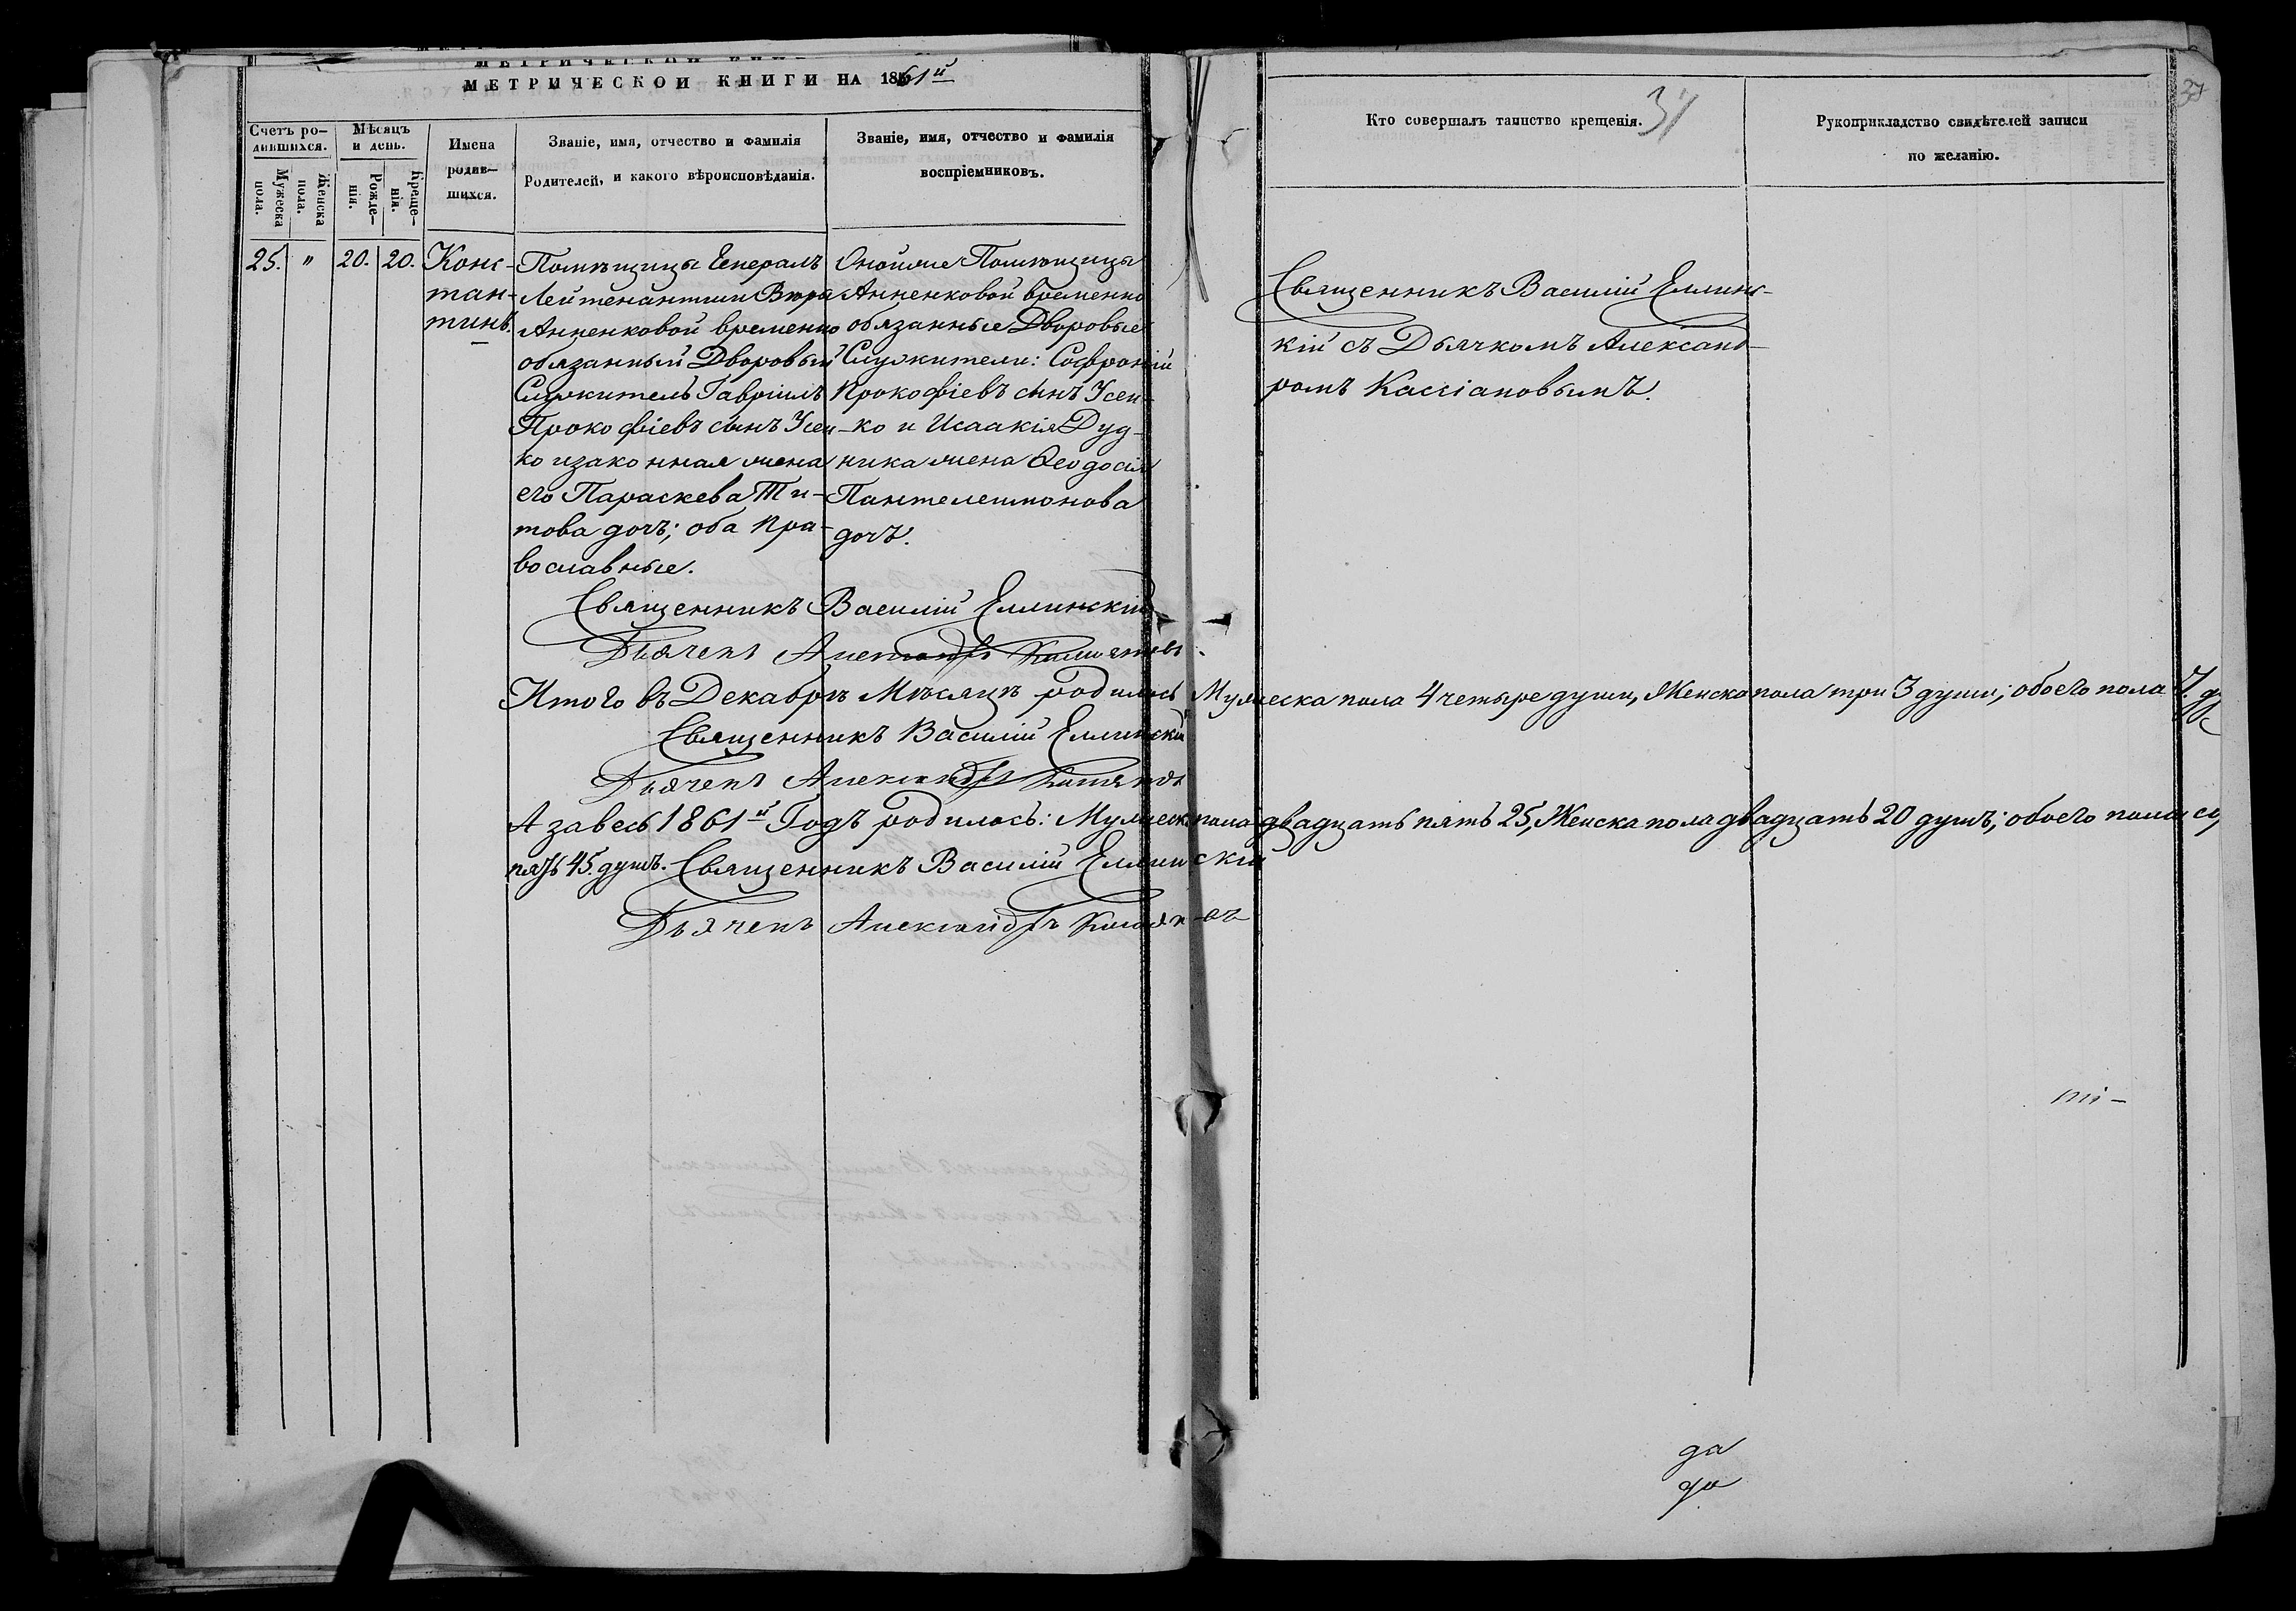 МЕТРИЧЕСКОЙ КНИГИ НА 1861й
Счетъ ро-
дившихся.
Мужеска
пола.
Женска
пола.
Мѣсяцъ
и день.
Рожде-
нія.
Креще-
нія.
Имена
родив-
шихся.
Званіе, имя, отчество и фамилія
Родителей, и какого вѣроисповѣданія.
Званіе, имя, отчество и фамилія
воспріемниковъ.
Кто совершалъ таинство крещенія.
37
Рукоприкладство свидѣтелей записи
по желанію.
37
25. " 20. 20.
Конс-
тан-
тинъ.
Помѣщицы Генералъ
Лейтенантши Вѣры
Анненковой временно
обязанный Дворовый
Служитель Гавріилъ
Прокофіевъ сынъ Усен-
ко изаконная жена
его Параскева Ти-
това дочь; оба пра-
вославные.
Онойже Помѣщицы
Анненковой временно
обязанные Дворовые
Служители: Софроній
Прокофіевъ сынъ Усен-
ко и Исаакія Дуд-
ника жена Ѳеодосія
Пантелеимонова
дочь.
Священникъ Василій Еллинс-
кій съ Дьячкомъ Александ-
ромъ Кассіановымъ.
Священникъ Василій Еллинскій
Дьячекъ Александръ
Итого въ Декабрѣ Мѣсяцѣ родилось Мужеска пола 4 четыре души, Женска пола три 3 души; обоего пола 7. ду
Священникъ Василій Еллинскій
Дьячекъ Александръ
А завесь 1861й Годъ родилось: Мужеск пола двадцать пять 25, Женска пола двадцать 20 душъ; обоего пола со
пять 45. душъ. Священникъ Василій Еллинскій
Дьячекъ Александръ
да